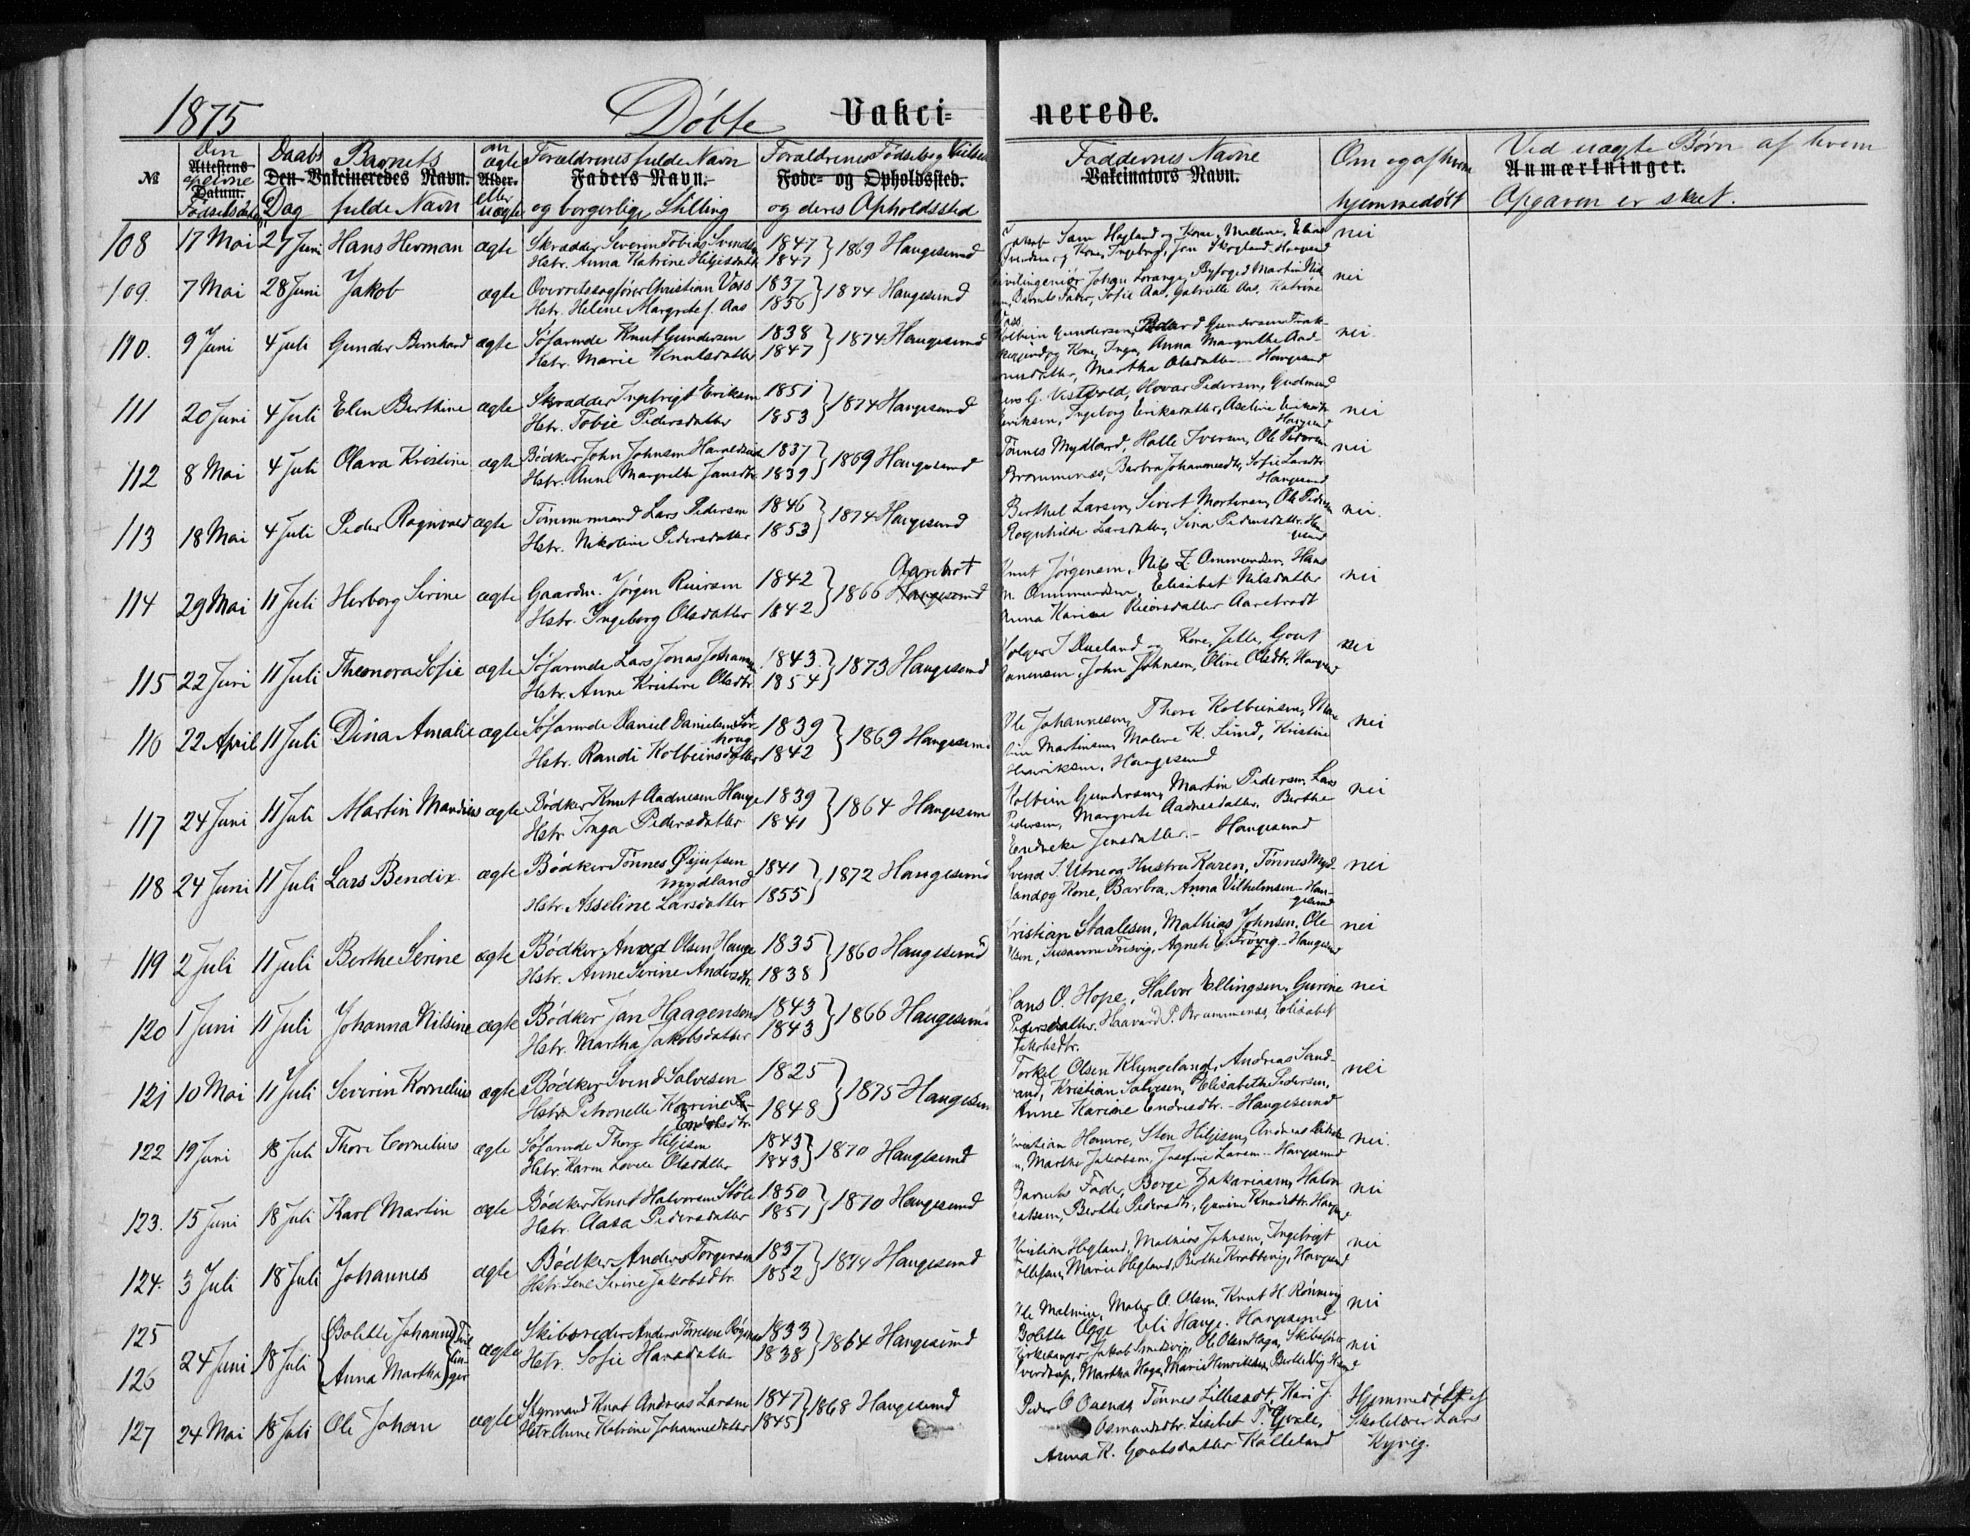 1875 Døbte Vakci= nerede.
№ Attestens Datum. Den Vakcineredes Navn. Alder. Faders Navn. Føde- og Opholdssted. Vakcinators Navn. Anmærkninger.
Daabs Barnets om ægte Forældrenes fulde Navn Forældrenes Fødsels og Faddernes Navne Om og af hvem Ved uægte Børn af hvem
Dag fulde Navn eller uægte og borgerlige Stilling og deres Opholdssted hjemmedøbt Opgaven er skeet.
108 17 Mai 27 Juni Hans Herman ægte Skrædder Severin Tobias Svendsen 1847 } 1869 Haugesund Sam Hegland og Kone, Malene, nei
Hstr. Anna Katrine 1847 og Kone, Ingeborg, Haugesund
109. 7 Mai 28 Juni Jakob ægte Overretssagfører Christian Voss 1837 } 1874 Haugesund Johan Lorange, Byfoged Martin nei
Hstr. Helene Margrete f. Aas 1856 Barnets Fader, Sofie Aas, Gabrielle Aas, Katrine
Voss
110. 9 Juni 4 Juli Gunder Bernhard ægte Søfarende Knut Gundersen 1838 } 1874 Haugesund Kolbein Gundersen, Gundersen nei
Hstr. Marie Knutsdatter 1847 og Kone, Inga, Anna Margrethe
Martha Olsdatter Haugesund
111 20 Juni 4 Juli Elen Berthine ægte Skrædder Ingebrigt Eriksen 1851 } 1874 Haugesund G. Vestbold, Hovar Pedersen, Gudmund nei
Hstr. Tobie Pedersdatter 1853 Eriksen, Ingeborg Eriksdatter, Aseline
Haugesund
112 8 Mai 4 Juli Olava Kristine ægte Bødker John Johnsen 1837 } 1869 Haugesund Tønnes Mydland, Halle Iversen, Ole Pedersen nei
Hstr. Anne Margrethe Jansdtr. 1839 Brommenæs, Barbra Johannesdtr, Sofie Larsdtr
Haugesund
113 18 Mai 4 Juli Peder Ragnvald ægte Tømmermand Lars Pedersen 1846 } 1874 Haugesund Berthel Larsen, Sivert Mortensen, Ole Pedersen nei.
Hstr. Nikoline Pedersdatter 1853 Ragnhilde Larsdatter, Sina Pedersdatter. Hau
gesund
114 29 Mai 11 Juli Herborg Serine ægte Gaardm. Jørgen Reiersen 1842 } 1866 Haugesund Knut Jørgensen, Nils Z. Ommundsen, Hans nei
Hstr. Ingeborg Olsdatter 1842 Ommundsen, Elisabet Nilsdatter
Anna Karine Reiersdatter Aarebrodt
115 22 Juni 11 Juli Theonora Sofie ægte Søfarende Lars Jonas Johannesen 1843 } 1873 Haugesund Holger I Dueland og Kone, Jelle, Gout nei
Hstr. Anne Kristine Olsdtr. 1854 John Johnsen, Oline Olsdtr,
116 22 April 11 Juli Dina Amalie ægte Søfarende Daniel Danielsen Sør- 1839 } 1869 Haugesund Ole Johannesen, Thore Kolbeinsen, nei
haug
Hstr. Randi Kolbeinsdatter 1842 Martinsen, Malene K. Lund, Kristine
Henriksen, Haugesund
117 24 Juni 11 Juli Martin Mandius ægte Bødker Knut Aadnesen Hauge 1839 } 1864 Haugesund Kolbein Gundersen, Martin Pedersen, Lars nei
Hstr. Inga Pedersdatter 1841 Pedersen, Margrete Aadnesdatter, Berthe
Endreke Jensdatter. - Haugesund
118 24 Juni 11 Juli Lars Bendix ægte Bødker Tønnes 1841 } 1872 Haugesund Svend S. Utne og Hustru Karen, Tønnes Myd- nei
Mydland
Hstr. Asseline Larsdatter 1855 land og Kone, Barbra, Anna Vilhelmsen - Hau-
gesund
119 2 Juli 11 Juli Berthe Serine ægte Bødker Olsen Hauge 1835 } 1860 Haugesund Kristian Staalesen, Mathias Johnsen, Ole nei
Hstr. Anne Serine Andersdtr. 1838 Olsen, Susanne Tresvig, Agnete - Haugesund
120 1 Juni 11 Juli Johanna Nilsine ægte Bødker Jan Haagensen 1843 } 1866 Haugesund Hans O. Hope, Halvor Ellingsen, Gurine nei
Hstr. Martha Jakobsdatter 1843 Pedersdatter. Haavard P. Brummenes, Elisabet
Jakobsdtr.
121 10 Mai 11 Juli Severin Kornelius ægte Bødker Svend Salvesen 1825 } 1875 Haugesund Torkel Olsen Klyngeland, Andreas Sand- nei
Hstr. Petronelle Karine 1848 Kristian Salvesen, Elisabeth Pedersen,
Anne Karine Endresdtr. - Haugesund
122 19 Juni 18 Juli Thore Cornelius ægte Søfarende Thore Hiljesen 1843 } 1870 Haugesund Kristian Sten Hiljesen, Andreas nei.
Hstr. Karen Lovise Olsdatter 1843 Marthe Jakobsen, Josefine Larsen - Haugesund
123. 15 Juni 18 Juli Karl Martin ægte Bødker Knut Halvorsen Støle 1850 } 1870 Haugesund Barnets Fader, Børge Zakariasen, nei
Hstr. Aasa Pedersdatter 1851 Berthe Pedersdtr, Gurine Knudsdtr.
124. 3 Juli 18 Juli Johannes ægte Bødker Anders Torgersen 1837 } 1874 Haugesund Kristian Hegland, Mathias Johnsen, Ingebrigt nei
Hstr. Lene Serine Jakobsdtr. 1852 Marie Hegland, Berthe Haugesund
125 24 Juni 18 Juli Bolette Johanne Tvil ægte Skibsreder Anders Tørresen 1833 } 1864 Haugesund Ole Malmin, O. Olsen, Knut H. Rønnevig nei
Bolette Eli Hauge. Haugesund
126 Anna Martha lin ger Hstr. Sofie Hansdatter 1838 Kirkesanger Jakob Smedsvig, Ole Olsen Haga, Skibsfører nei
Martha Haga, Marie Henriksen,
127 24 Mai 18 Juli Ole Johan ægte Styrmand Knut Andreas Larsen 1847 } 1868 Haugesund Peder O Tønnes Lillesadt, Kari J. Hjemmedøbt af
Hstr. Anne Katrine Johannesdatter 1845 Osmundsdtr. Lisebet T. Skolelærer Lars
Anna K. Goutsdatter Kalleland Kyvig.